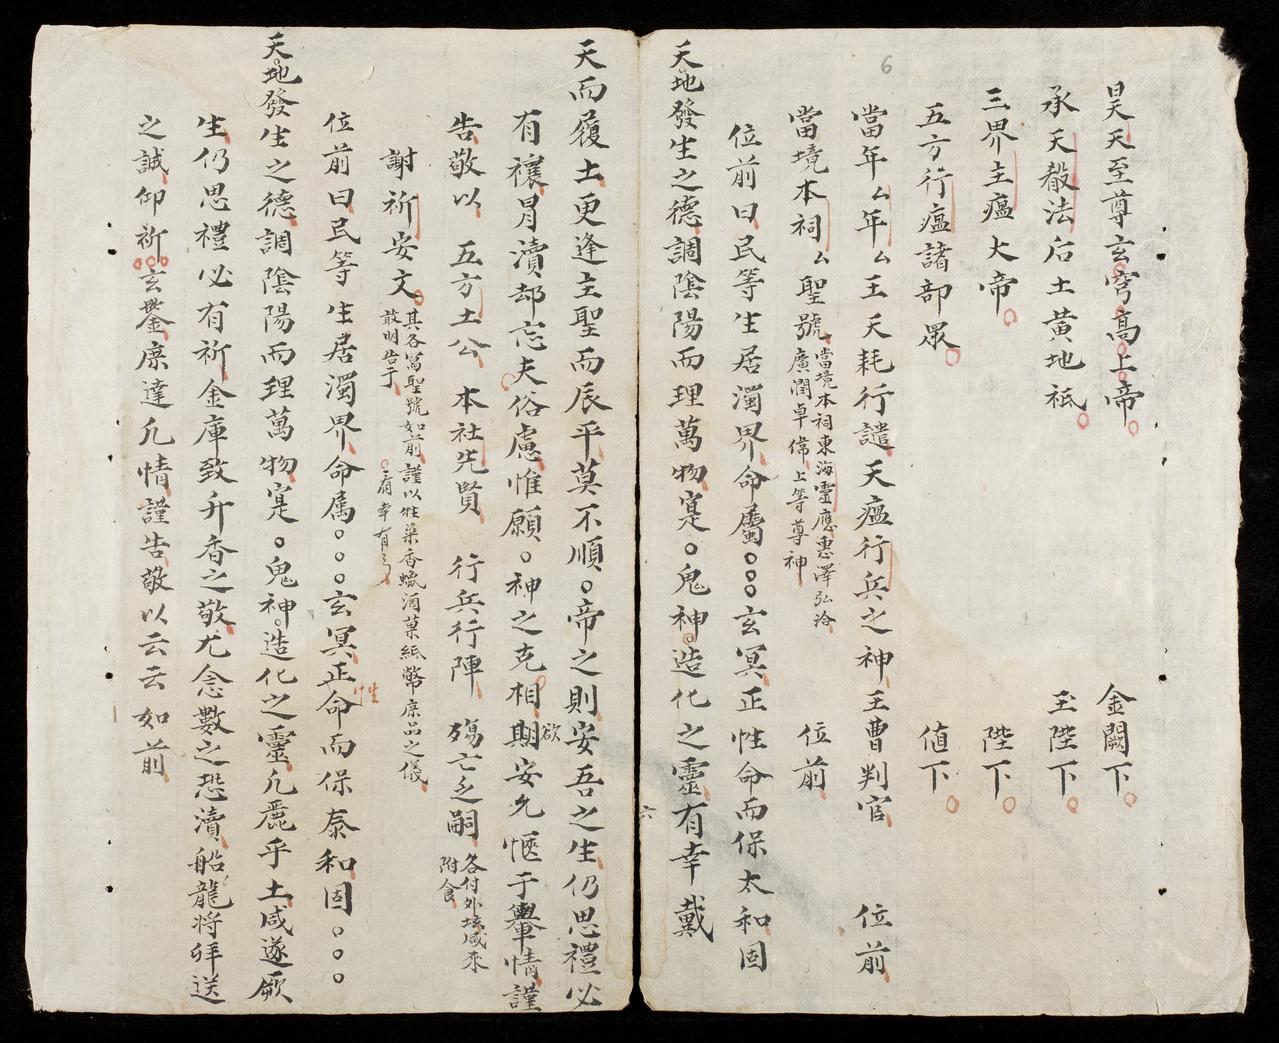 昊天至尊玄穹高上帝 金闕下
承天敎法后土黃地祗 玉陛下
三界主瘟大帝 陛下
五方行瘟諸部眾 値下
當年厶年厶王天耗行譴天瘟行兵之神王曹判官 位前
當境本祠厶聖號 當境本祠東海靈應惠澤弘洽
廣潤卓偉上等尊神 位前
位前曰民等生居濁界命屬。。。玄冥正性命而保太和固
天地發生之德調陰陽而理萬物寔。鬼神造化之靈有幸戴
6
六
天而履土更逢主聖而辰平莫不順。帝之則安吾之生仍思禮必
有禳冐瀆却忘夫俗慮惟願。神之克相期欲安允愜于輿情謹
告敬以 五方土公 本社先賢 行兵行陣 殤亡乏嗣 各付外垓咸來
附食
謝祈安文 其各寫聖號如前謹以牲粢香蠟酒菓紙幣庶品之儀
敢明告于
位前曰民等生居濁界命属。。。玄冥正命而保泰和固。。。
生
天地發生之德調陰陽而理萬物寔。鬼神造化之靈凡麗乎土咸遂厥
生仍思禮必有祈金庫致升香之敬尤念數之恐瀆船龍將拜送
之誠仰祈玄鑒庶達凡情謹告敬以云云如前